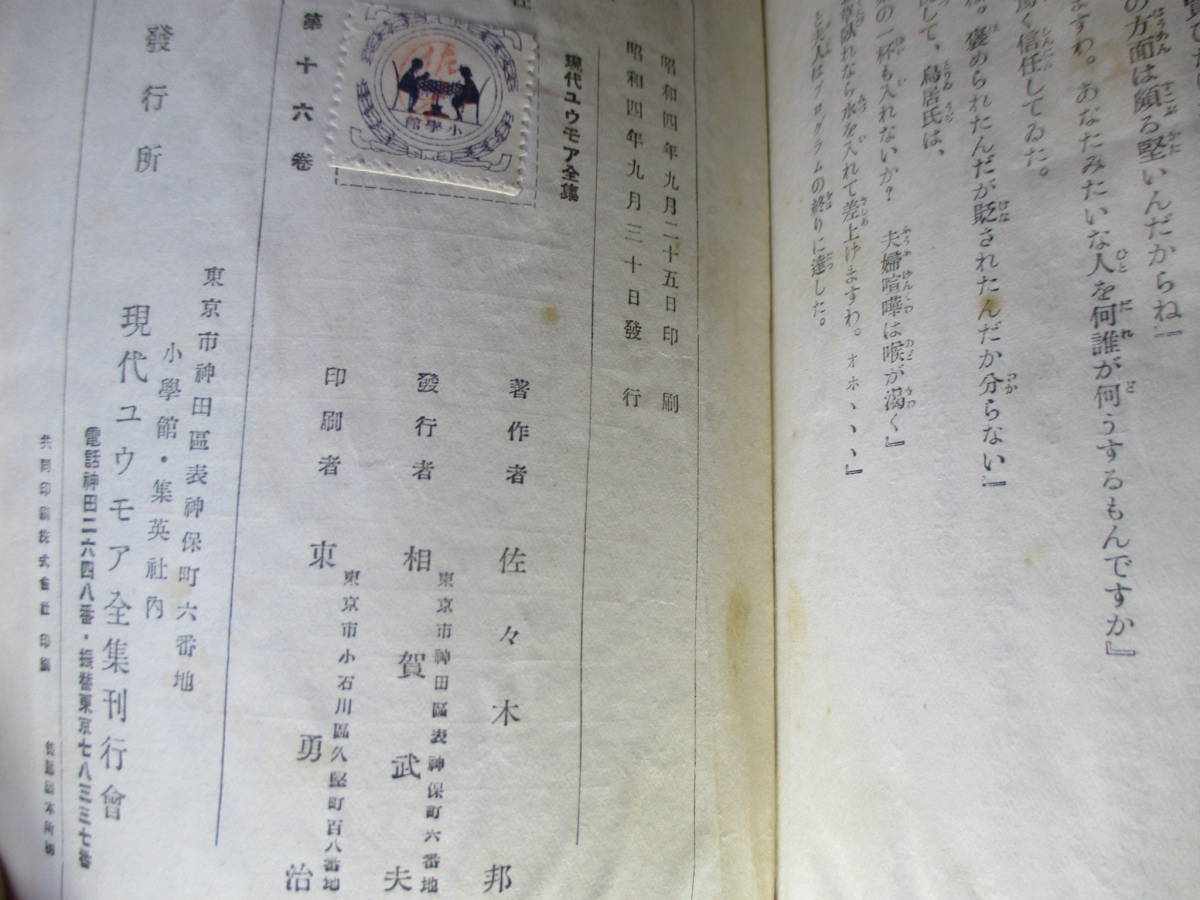 の方面は頗る堅いんだからね』
ますわ。あなたみたいな人を何誰が何うするもんですか』
く信任してゐた。
。褒められたんだが貶されたんだか分らない』
して、鳥居氏は、
の一杯も入れないか? 夫婦喧嘩は喉が渇く』
れなら水を入れて差上げますわ。オホヽヽヽ』
と夫人はプログラムの終りに達した。
昭和四年九月二十五日印刷
昭和四年九月三十日發行
現代ユウモア全集
第十六卷
小學館
著作者 佐々木邦
東京市神田區表神保町六番地
發行者 相賀武夫
東京市小石川區久堅町百八番地
印刷者 東勇治
發行所
東京市神田區表神保町六番地
小學館・集英社内
現代ユウモア全集刊行會
電話神田二六四八番・振替東京七八三三七番
共同印刷株式會社印刷